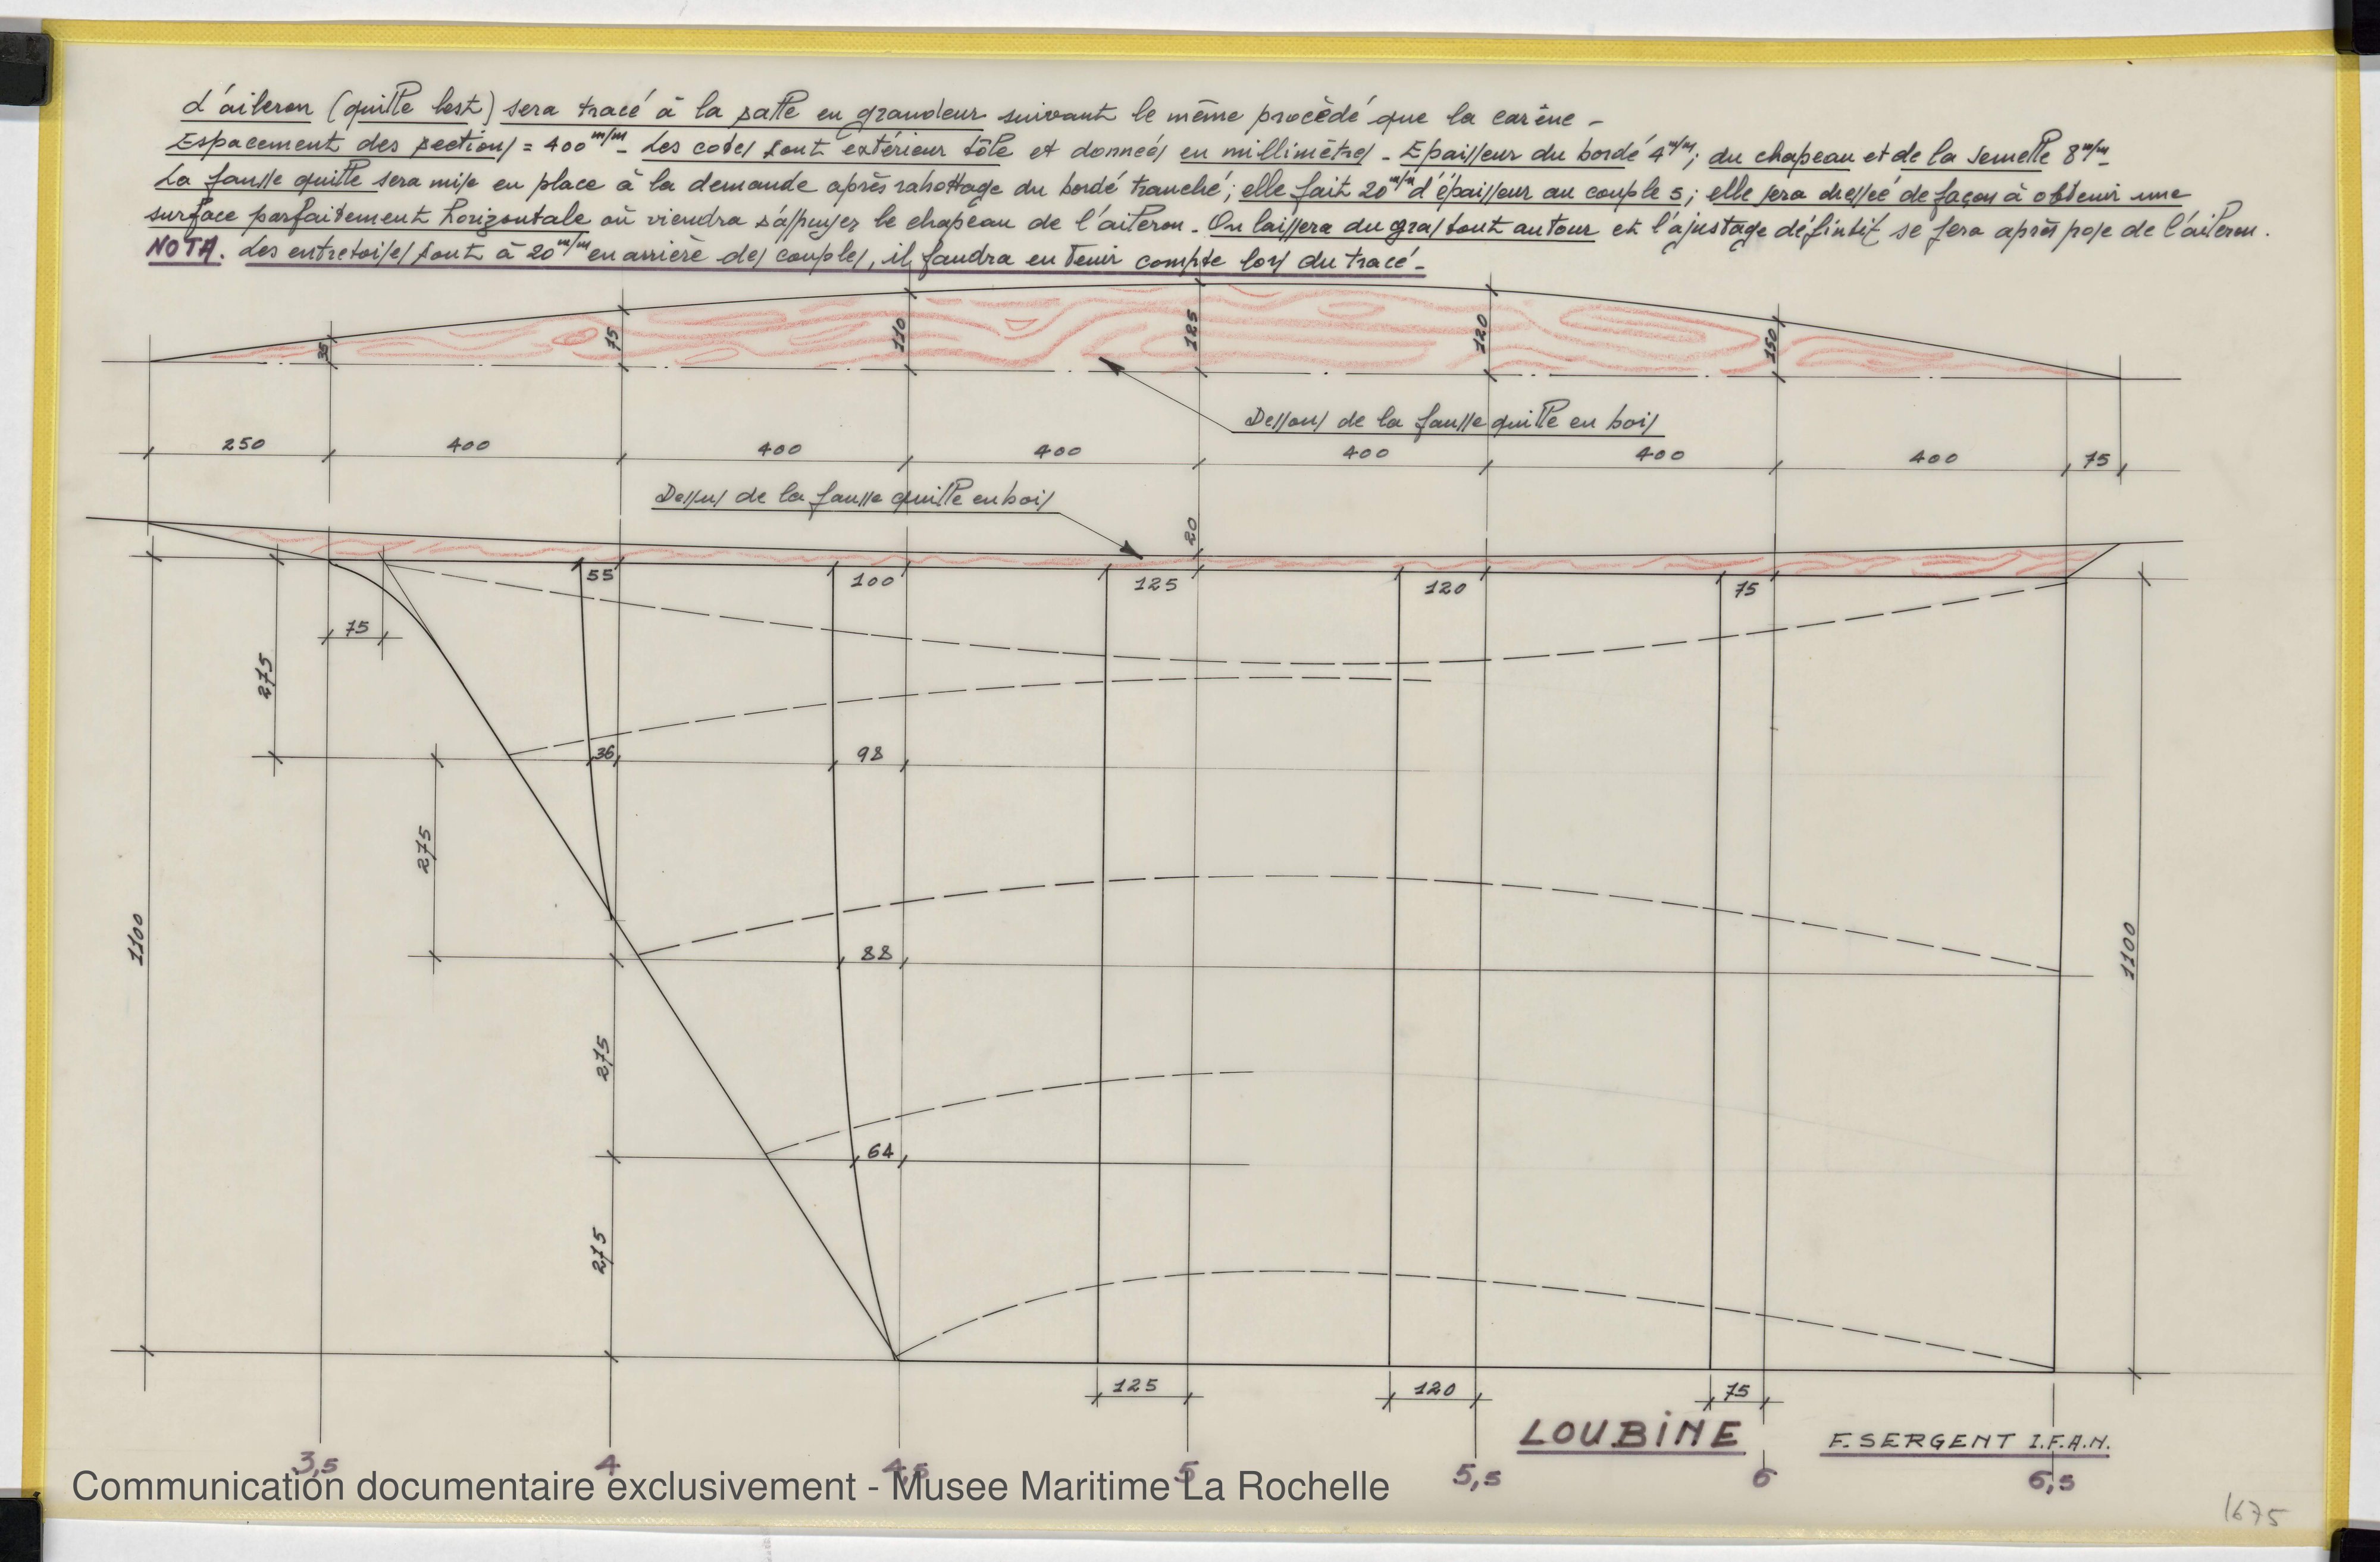 L'aileron (quille lest) sera tracé à la salle en grandeur suivant le même procédé que la carène -
Espacement des sections = 400 m/m - Les cotes sont extérieur tôle et données en millimètres - Epaisseur du bordé 4 m/m; du chapeau et de la semelle 8 m/m
La fausse quille sera mise en place à la demande après rabottage du bordé tranché; elle fait 20 m/m d'épaisseur au couple 5; elle sera dressée de façon à obtenir une
surface parfaitement horizontale où viendra s'appuyer le chapeau de l'aileron - On laissera du gras tout autour et l'ajustage définitif se fera après pose de l'aileron.
NOTA. Les entretoises sont à 20 m/m en arrière des couples, il faudra en tenir compte lors du tracé -
35 75 110 125 120 150
Dessous de la fausse quille en bois
250 400 400 400 400 400 400 75
Dessus de la fausse quille en bois
20
55 100 125 120 75
75
275
36 98
275
88
1100 1100
275
64
275
125 120 75
LOUBINE
F. SERGENT I.F.A.N.
3,5 4 4,5 5 5,5 6 6,5
Communication documentaire exclusivement - Musee Maritime La Rochelle
1675